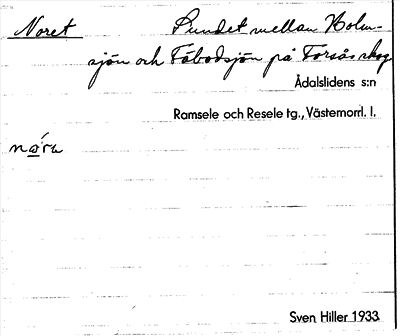 Noret Sundet mellan Holm-
sjön och Fäbodsjön på Forsås skog
Ådalslidens s:n
Ramsele och Resele tg., Västernorrl. l.
nǻra
Sven Hiller 1933